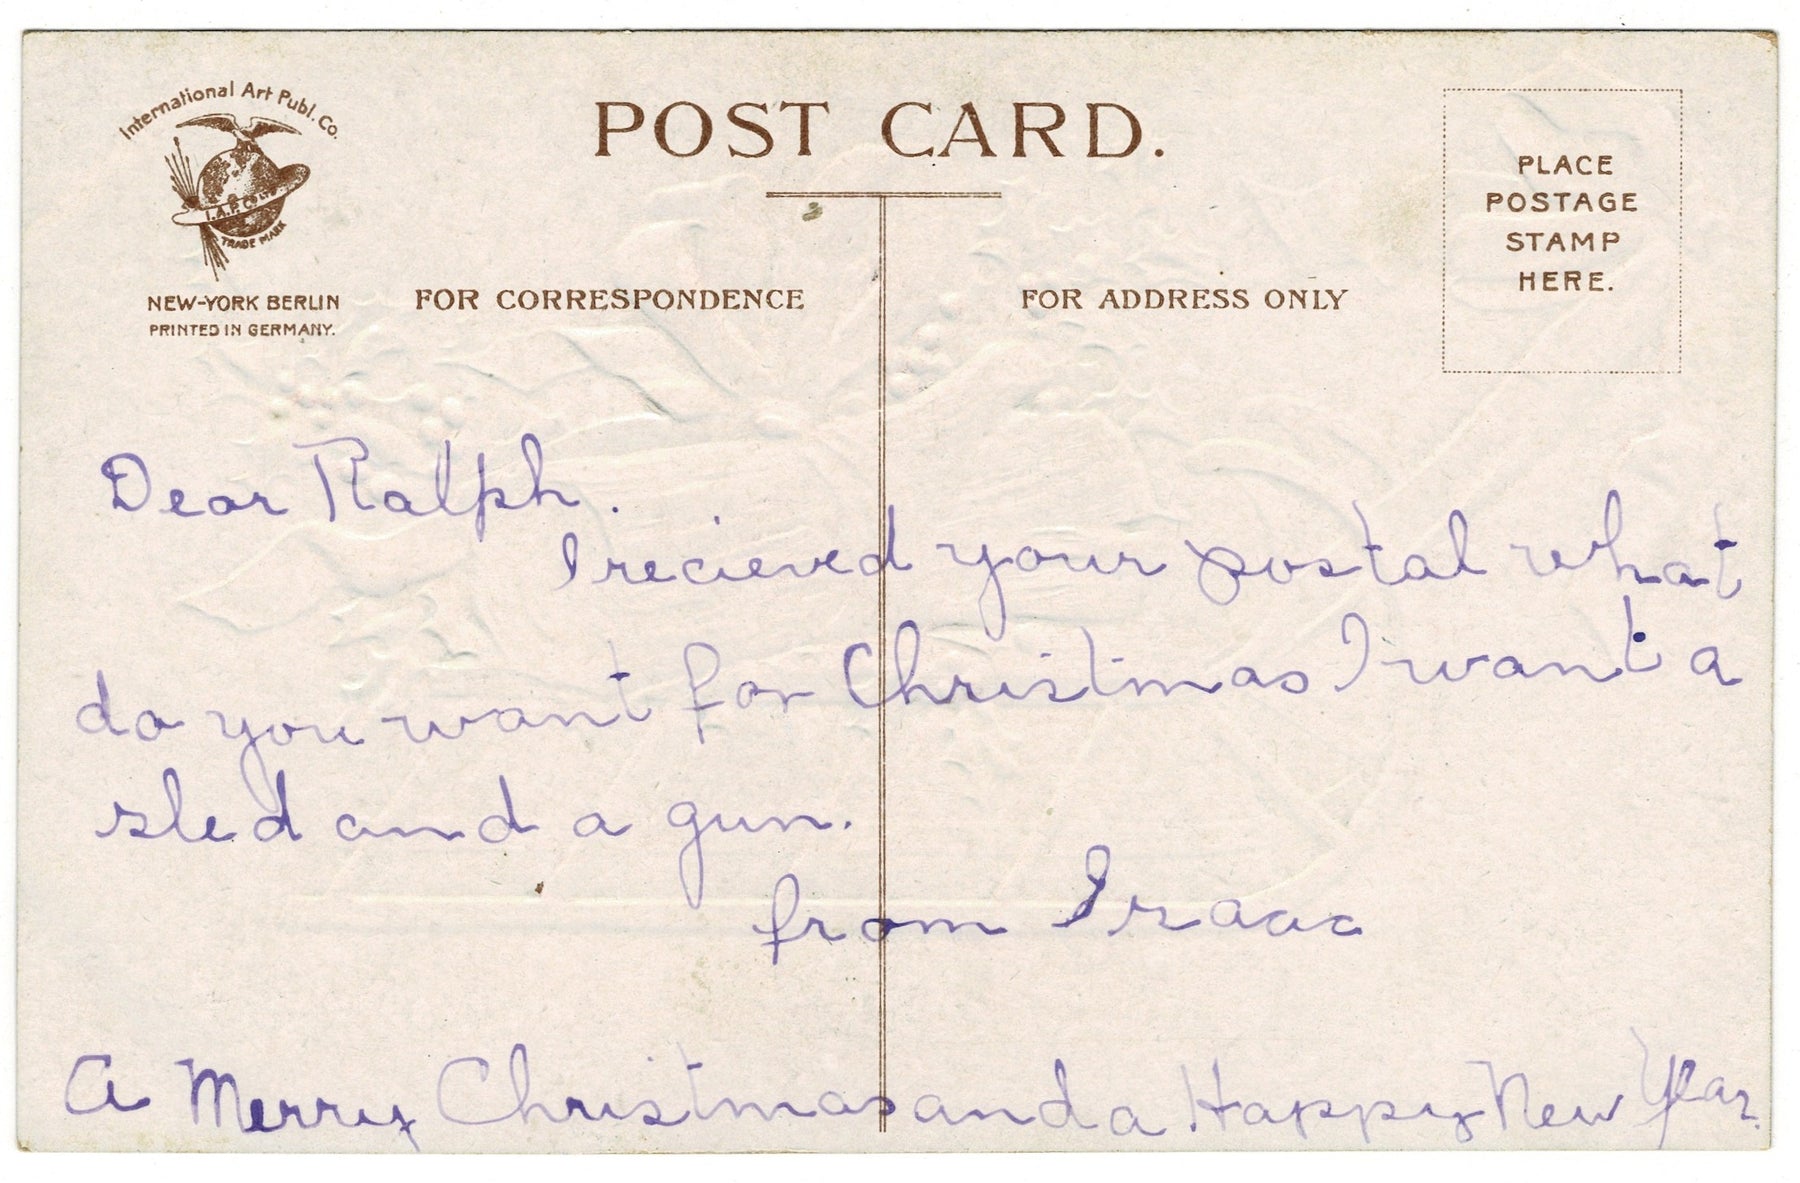 International Art Publ. Co.
I.A.P. Co.
TRADE MARK
NEW-YORK BERLIN
PRINTED IN GERMANY.
POST CARD.
FOR CORRESPONDENCE
FOR ADDRESS ONLY
PLACE
POSTAGE
STAMP
HERE.
Dear Ralph.
I recieved your postal what
do you want for Christmas I want a
sled and a gun.
from Isaac
A Merry Christmas and a Happy New Year.